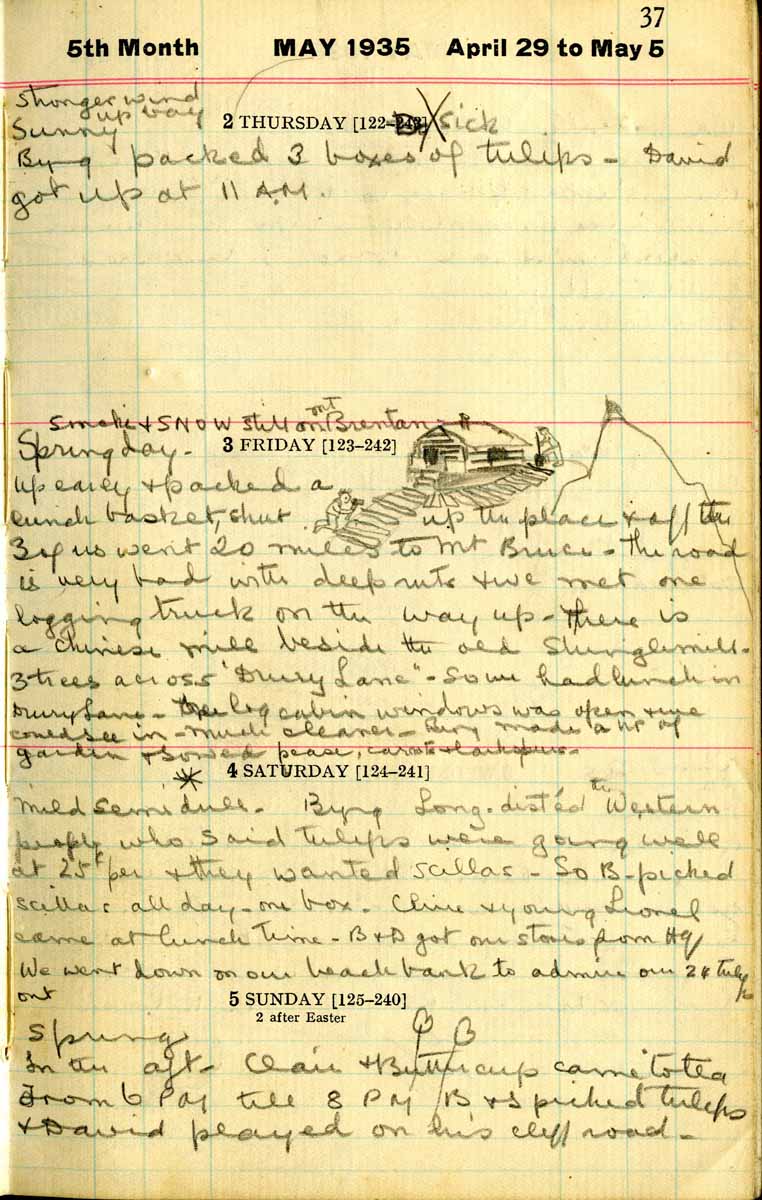 37
5th Month MAY 1935 April 29 to May 5
Stronger wind
up bay
Sunny
2 THURSDAY [122-243] sick
Byng packed 3 boxes of tulips - David
got up at 11 A.M.
Smoke & SNOW still on mt Brenton
Spring day - 3 FRIDAY [123-242]
up early & packed a
lunch basket, shut up the place & off the
3 of us went 20 miles to Mt Bruce - the road
is very bad with deep ruts & we met one
logging truck on the way up - there is
a Chinese mill beside the old Shinglemill -
3 trees across "Drury Lane" - So we had lunch in
Drury Lane - The log cabin windows was open & we
could see in - much cleaner - Byng made a bit of
garden & sowed pease, carrots & larkspur -
4 SATURDAY [124-241]
Mild semi dull - Byng Long-dist'ed the Western
people who said tulips were going well
at 25¢ per & they wanted scillas - So B - picked
scillas all day - one box - Clive & young Lionel
came at lunch time - B & D got our stores from Hq
We went down on our beach bank to admire our 24 tulips
out
5 SUNDAY [125-240]
2 after Easter
Spring
In the aft - Clair & Buttercup came to tea
From 6 PM till 8 PM B & I picked tulips
& David played on his cliff road -